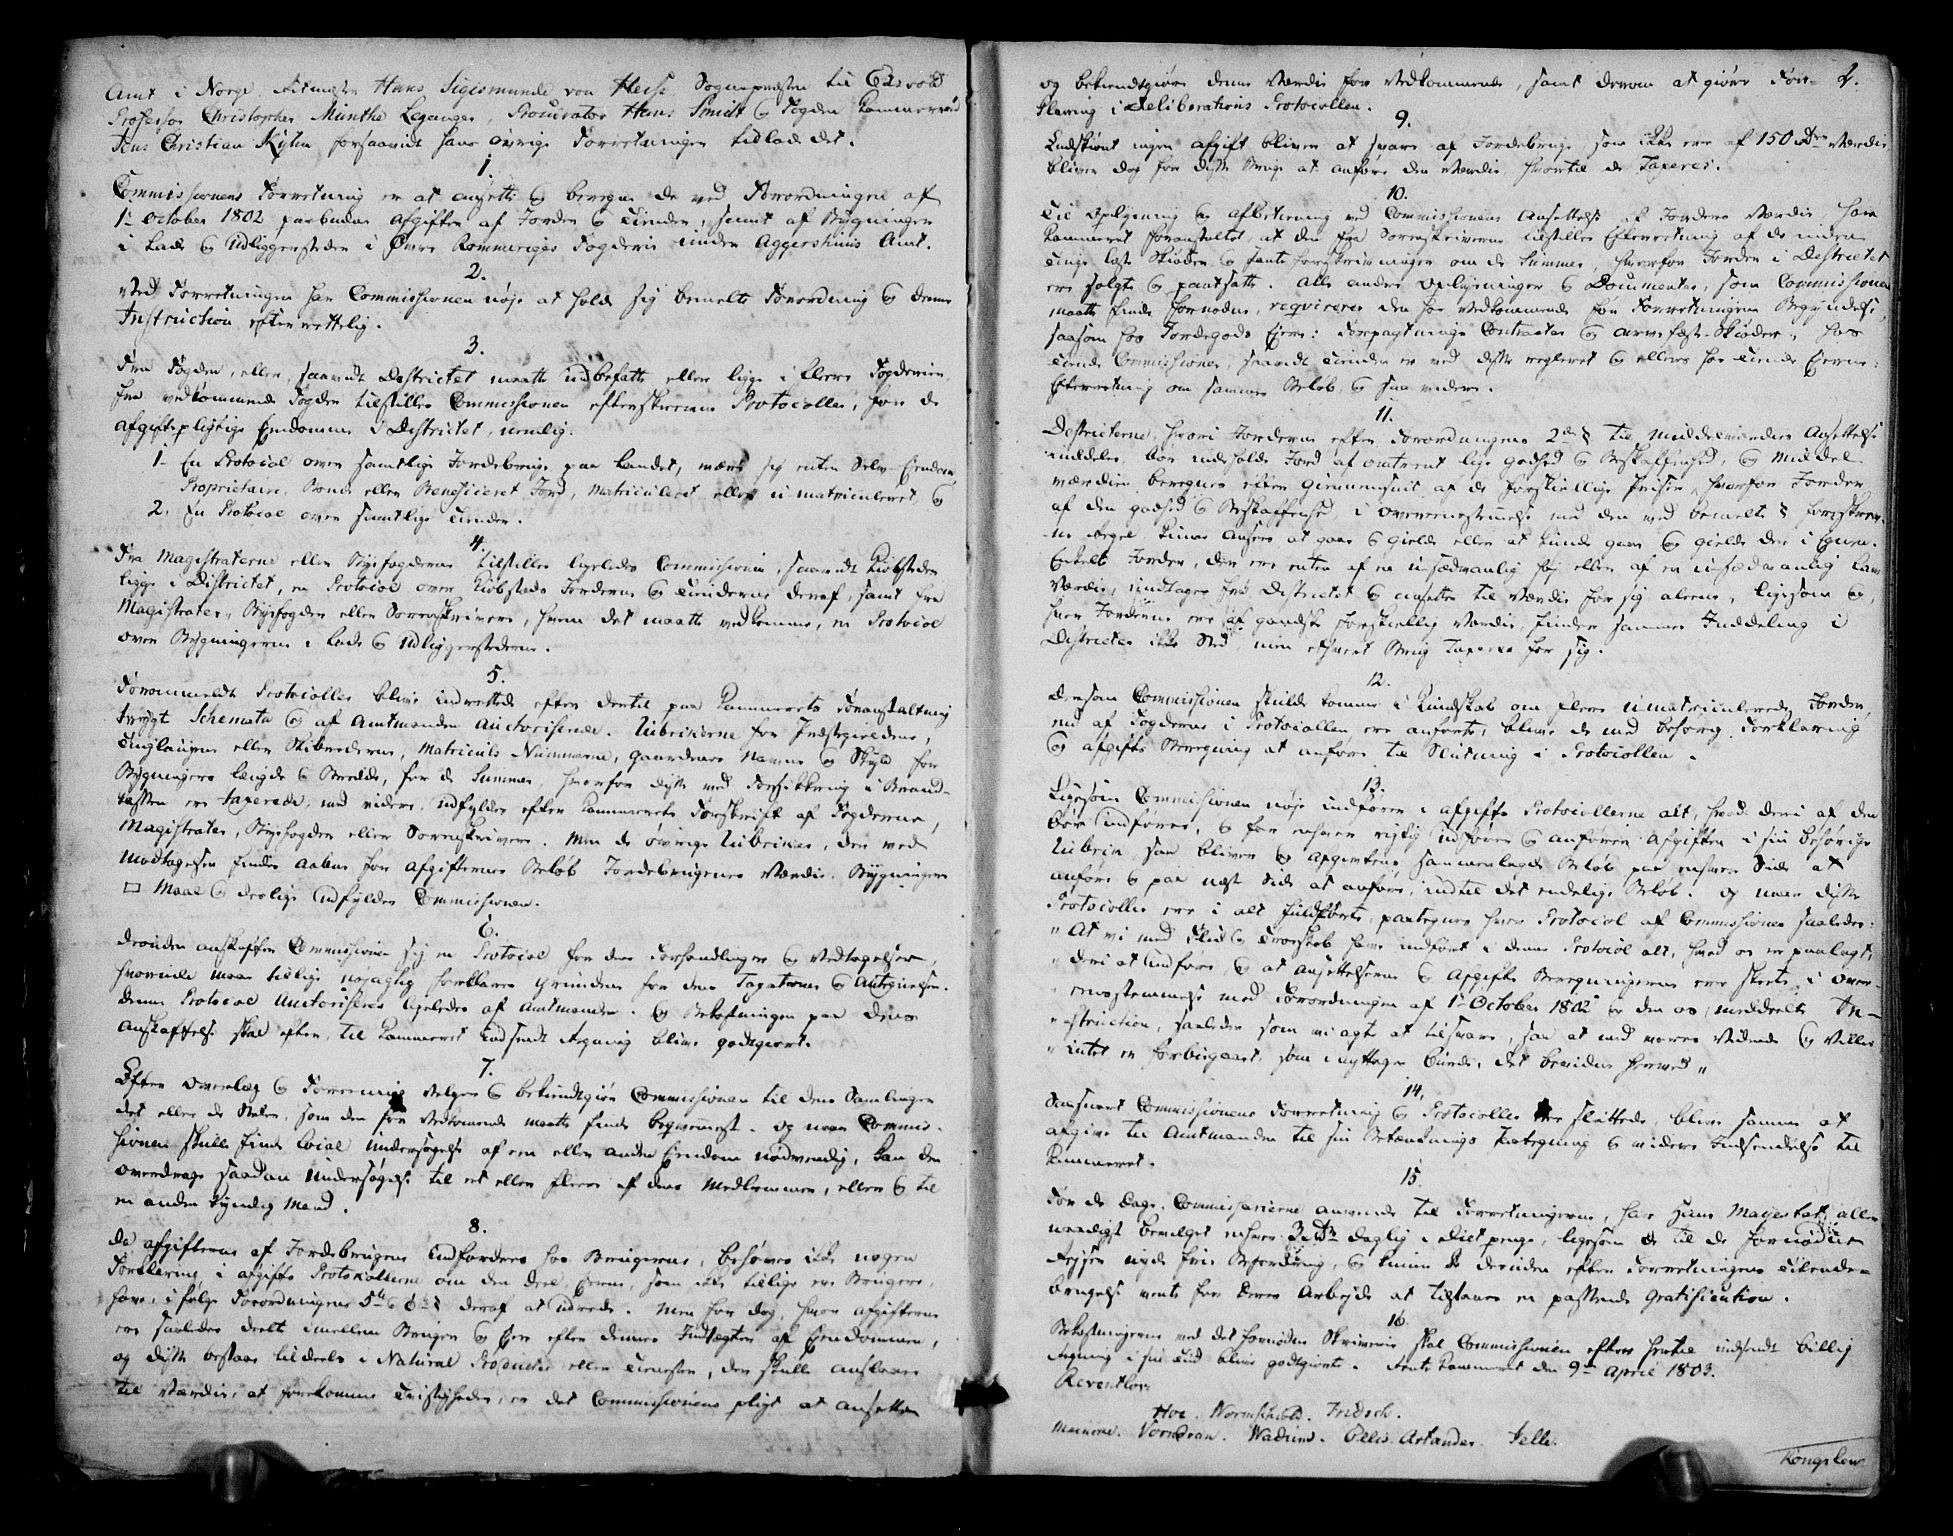 Amt i Norge, Ritmester Hans Sigismund von Hesse, Sognepræsten til Eidsvold
Professor Christopher Munthe Leganger, Procurator Hans Smidt & Fogden Kammerraad
Jens Christian Kyhn forsaavidt hans øvrige Forretninger tillade det.
1.
Commissionens Forretning er at ansætte & beregne de ved Forordningen af
1te October 1802 paabudne Afgifter af Jorder & Tiender, samt af Bygninger
i Lade & Udliggersteder i Øvre Rommeriges Fogderie under Aggershuus Amt.
2.
Ved Forretningen har Commissionen nøje at holde sig bemelte Forordning & denne
Instruction efterrettelig.
3.
Fra Fogden, eller, saavidt Districtet maatte indbefatte eller ligge i flere Fogderier,
fra vedkommende Fogder tilstilles Commissionen efterskrevne Protocoller, for de
afgiftspligtige Eiendomme i Districtet, nemlig:
1. En Protocol over samtlige Jordebruge paa Landet, være sig enten Selv-Eiendom,
Proprietair, Bonde eller Beneficeret Jord, matriculeret eller umatriculeret, &
2. En Protocol over samtlige Tiender.
4.
Fra Magistraterne eller Byefogderne tilstilles ligeledes Commissionen, saavidt Kiøbsteder
ligge i Districtet, en Protocol over Kiøbstæds Jorderne & Tienderne deraf, samt fra
Magistrater, Byefogder eller Sorenskrivere, hvem det maatte vedkomme, en Protocol
over Bygningerne i Lade & Udliggerstederne.
5.
Forommeldte Protocoller blive indrettede efter dertil paa Kammerets Foranstaltning
trygt Schemata & af Amtmanden Auctoriserede. Rubrikerne for Præstegieldene,
Tinglaugene eller Skibrederne, Matriculs Nummerne, Gaardenes Navne & Skyld for
Bygningers Længde & Bredde, for de Summer, hvorfor disse med Forsikkring i Brand-
Cassen ere taxerede, med videre, udfyldes efter Kammerets Forskrift af Fogderne,
Magistrater, Byefogder eller Sorenskrivere. Men de øvrige Rubriker, der ved
Modtagelsen findes aabne for Afgifternes Beløb, Jordebrugenes Værdie, Bygninger
□ Maal & deslige udfylder Commissionen.
6.
Desuden anskaffer Commissionen sig en Protocol for dens Forhandlinger & Vedtagelser,
hvorinde man tillige nøjagtig forklarer Grundene for dens Taxationer & Antegnelser.
Denne Protocol Auctoriseres ligeledes af Amtmanden. & Bekostningen paa dens
Anskaffelse skal efter, til Kammeret indsendt Regning blive godtgiort.
7.
Efter Overlæg & Forening vælger & bekiendtgiør Commissionen til dens Samlinger
det eller de Steder, som den for Vedkommende maatte finde beqvemmest. Og naar Commis-
sionen skulle finde Local Undersøgelse af een eller anden Eiendom nødvendig, kan den
overdrage saadan Undersøgelse til et eller flere af dens Medlemmer, eller & til
en anden kyndig Mand.
8.
Da Afgifterne af Jordebrugene indfordres hos Brugerne, behøves ikke nogen
Forklaring i Afgifts Protocollerne om den Deel, Eierne, som ikke tillige ere Brugere,
have, i følge Forordningens 5te & 6te § deraf at udrede. Men for dog, hvor Afgifterne
ere saaledes deelt imellem Bruger & Eier efter dennes Indtægter af Eiendommen,
og disse bestaae tildeels i Natural Producter eller Tienester, der skulle anslaaes
til Værdie, at forekomme Tvistigheder, er det Commissionens pligt at ansætte
og bekiendtgiøre denne Værdie for Vedkommende, samt derom at giøre For- 2.
klaring i Deliberations Protocollen.
9.
Endskiønt ingen Afgift bliver at svare af Jordebruge, som ikke ere af 150 Rdrs Værdie
bliver dog for disse Bruge at anføre den Værdie, hvortil de Taxeres.
10.
Til Oplysning & Afbenyttning ved Commissionens Ansættelse af Jordens Værdie, har
Kammeret foranstaltet, at den fra Sorenskriverne tilstilles Efterretning af de inden
Tinge læste Skiøder & Pante forskrivninger om de Summer, hvorfor Jorder i Districtet
ere solgte & pantsatte. Alle andre Oplysninger & Documenter, som Commissionen
maatte finde fornødne, reqvireres den hos Vedkommende før Forretningens Begyndelse,
saasom hos Jordegods Eiere: Forpagtnings Contracter & Arvefæste-Skiøder; hos
Tiende Commissioner, saavidt Tiender er ved disse regleret & ellers hos Tiende Eierne:
Efterretning om sammes Beløb & saa videre.
11.
Districterne, hvori Jorderne efter Forordningens 2den § til Middelværdiers Ansættelse
inddeles, bør indeholde Jord af omtrent lige godhed & Beskaffenhed, & Middel
værdien beregnes efter Giennemsnit af de forskiellige Priser, hvorfor Jorder
af den godhed & Beskaffenhed, i Overeensstemmelse med den ved bemelte § foreskrev-
ne Regel kunne ansees at gaae & gielde eller at kunde gaae & gielde der i Egnen.
Enkelte Jorder, der ere enten af en usædvanlig høj eller af en usædvanlig lav
Værdie, undtages fra Districtet & ansættes til Værdie for sig alene, ligesom &,
hvor Jorderne ere af gandske forskiellig Værdie, finder sammes Inddeling i
Districter ikke Sted, men ethvert Brug Taxeres for sig.
12.
Dersom Commissionen skulde komme i Kundskab om flere umatriculerede Jorder,
end af Fogderne i Protocollen ere anførte, blive de med behørig Forklaring
& Afgifts Beregning at anføre til Slutning i Protocollen.
13.
Ligesom Commissionen nøje indfører i Afgifts Protocollerne alt, hvad deri af den
bør indføres, & for enhver rigtig indføre & anføren Afgiften i sin behørige
Rubrik, saa bliver & Afgifternes sammenlagde Beløb paa enhver Side at
anføre & paa næste Side at anføre, indtil det endelige Beløb. Og naar disse
Protocoller ere i alt fuldførte, paategnes hver Protocol af Commissionen saaledes:
" At vi med Flid & Troeskab have indført i denne Protocol alt, hvad os er paalagt
" deri at indføre, & at Ansættelserne & Afgifts Beregningerne ere skeete i Over-
" eensstemmelse med Forordningen af 1te October 1802 & den os meddeelte In-
" struction, saaledes som vi agte at tilsvare, saa at med vores Vidende & Villie
" intet er forbigaaet, som iagttages burde, det bevidnes herved "
14.
Saasnart Commissionens Forretning & Protocoller ere sluttede, blive samme at
afgive til Amtmanden til sin Betænknings Paategning & videre Indsendelse til
Kammeret.
15.
For de Dage, Commissairerne anvende til Forretningerne, har Hans Majestæt aller
naadigst bevilget enhver 3 Rdr daglig i Diet penge, ligesom de til de fornødne
Rejser nyde frie Befordring, & kunne de desuden efter Forretningens Tilende-
bringelse vente for deres Arbejde at tilstaaes en passende Gratification.
16.
Bekostningerne med det fornødne Skriverie skal Commissionen efter hertil indsendt billig
Regning i sin Tid blive godtgiort. Rente Kammeret den 9de April 1803.
Reventlow
Hoe. Wormskiold. Fridsch.
Meinere. Vorndran. Wadum. Ollis. Artander. Selle.
Kongslew